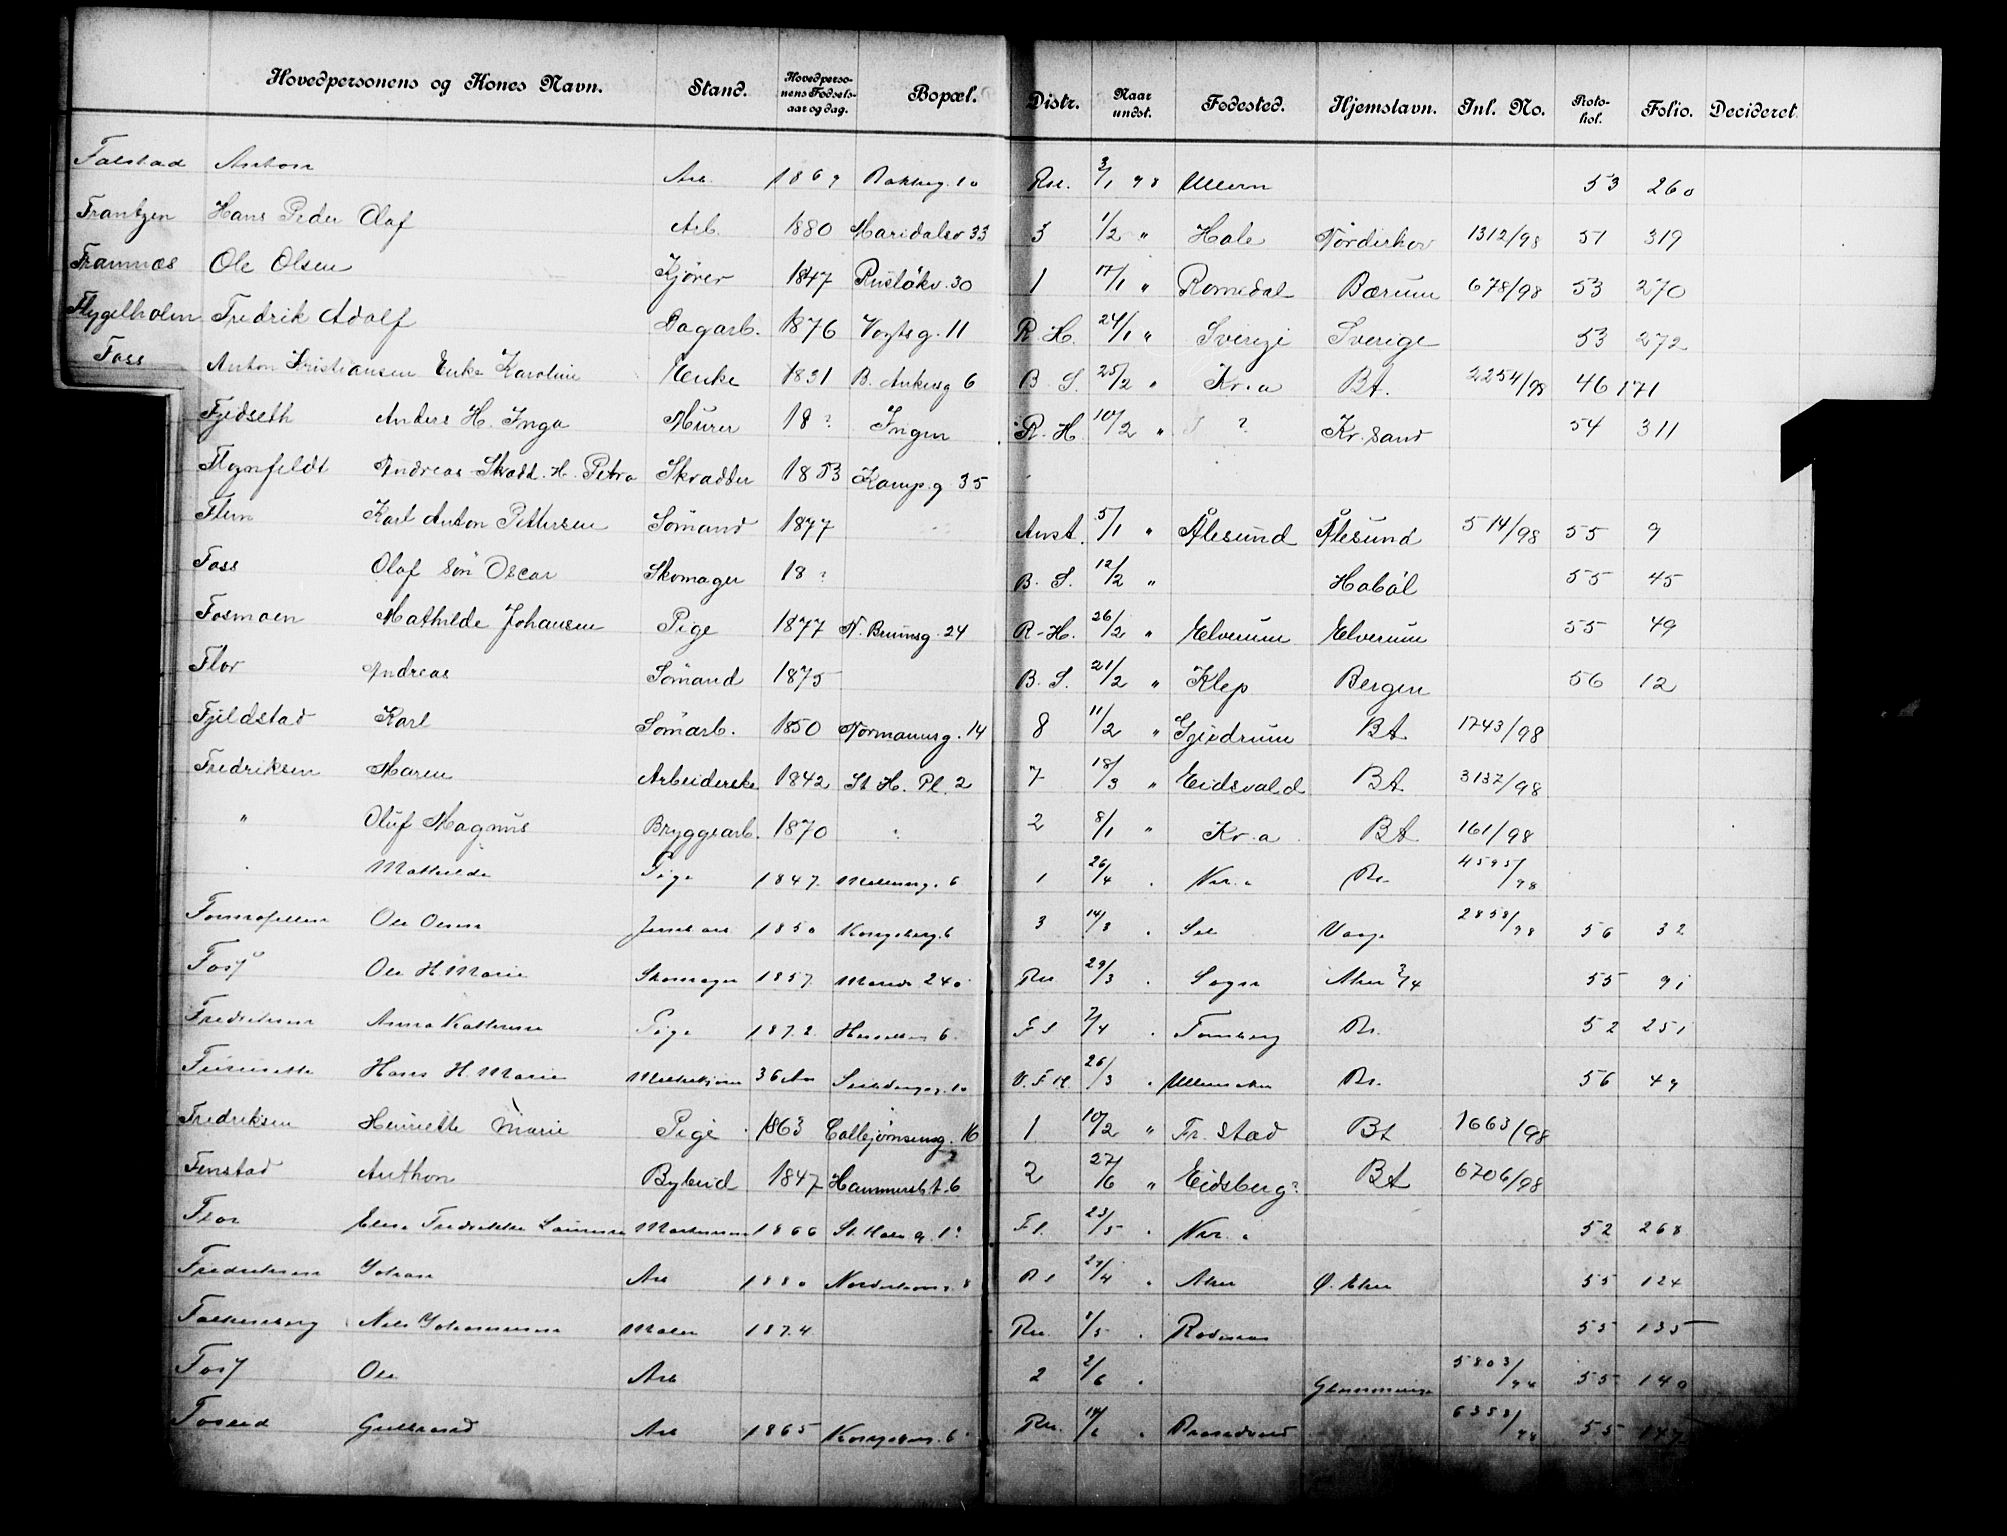 Hovedpersonens og Kones Navn. Stand. Hovedpersonens Fødselsaar og dag. Bopæl. Distr. Naar undst. Fødested. Hjemstavn. Inl. No. Protokol. Folio. Decideret.
Falstad Anton Arb. 1869 Bakkeg. 10 3/1 98 Ullern 53 260
Frantzen Hans Peder Olaf Arb. 1880 Maridalsv 33 3 1/2 " Hole Nørderhov 1312/98 51 319
Framnæs Ole Olsen Kjører 1847 Rusløkv. 30 1 17/1 " Romedal Bærum 678/98 53 270
Flygelholm Fredrik Adolf Dagarb. 1876 Vogtsg. 11 R. H. 24/1 " Sverige Sverige 53 272
Foss Anton Kristiansen Enke Karoline Enke 1831 B. Ankersg 6 B. S. 25/2 " Kr.a Bt. 2254/98 46 171
Fjedseth Anders H. Inga Murer 18 ? Ingen R. H. 10/2 " ? Kr. sand 54 311
Fleynfeldt Andreas Skadd. H. Petra Skrædder 1853 Kampg 35
Flem Karl Anton Pettersen Sømand 1877 Anst. 5/1 " Ålesund Ålesund 514/98 55 9
Foss Olaf søn Oscar Skomager 18 ? B. S. 12/2 " Hobøl 55 45
Fosmoen Mathilde Johansen Pige 1877 N. Brunsg. 24 R-H. 26/2 " Elverum Elverum 55 49
Flor Andreas Sømand 1875 B. S. 21/2 " Klep Bergen 56 12
Fjeldstad Karl Sømarb. 1850 Normannsg. 14 8 11/2 " Gjerdrum Bt 1743/98
Fredriksen Maren Arbeiderske 1842 St. H. Pl. 2 7 18/3 " Eidsvold Bt 3137/98
" Oluf Magnus Bryggearb. 1870 " 2 8/1 " Kr.a Bt 161/98
Mathilde Pige 1847 Møllerg. 6 1 26/4 " Kr.a 4595/98
Ole Olsen 1850 Kongsberg. 6 3 14/3 " Sel Vaage 2858/98 56 32
Foss Ole H. Marie Skomager 1857 Marids 240 29/3 " Sogn Aker 3/4 55 91
Fredriksen Anna Kathrine Pige 1872 6 2/4 " Tønsberg 52 251
Hans H. Marie 36 Aar 10 V. F. H. 26/3 " Ullensaker 56 49
Fredriksen Henriette Marie Pige 1863 Calmeyersg. 16 1 10/2 " Fr. stad Bt 1663/98
Fenstad Anthon Bybud 1847 Hammersbt. 6 2 27/6 " Eidsberg? Bt 6706/98
Flor Elise Fredrikke 1866 St. Hans g. 23/5 " Kr.a 52 268
Fredriksen Johan Arb 1880 8 29/4 " Aker Ø. Aker 55 124
Falkenberg Nils Johannesen Maler 1874 1/5 " Rødenes 55 135
Foss Ole Arb 2 2/6 " Glemminge 5803/98 55 140
Foseid Gulbrand Arb 1865 Kongsberg. 6 14/6 " 6353/98 55 147